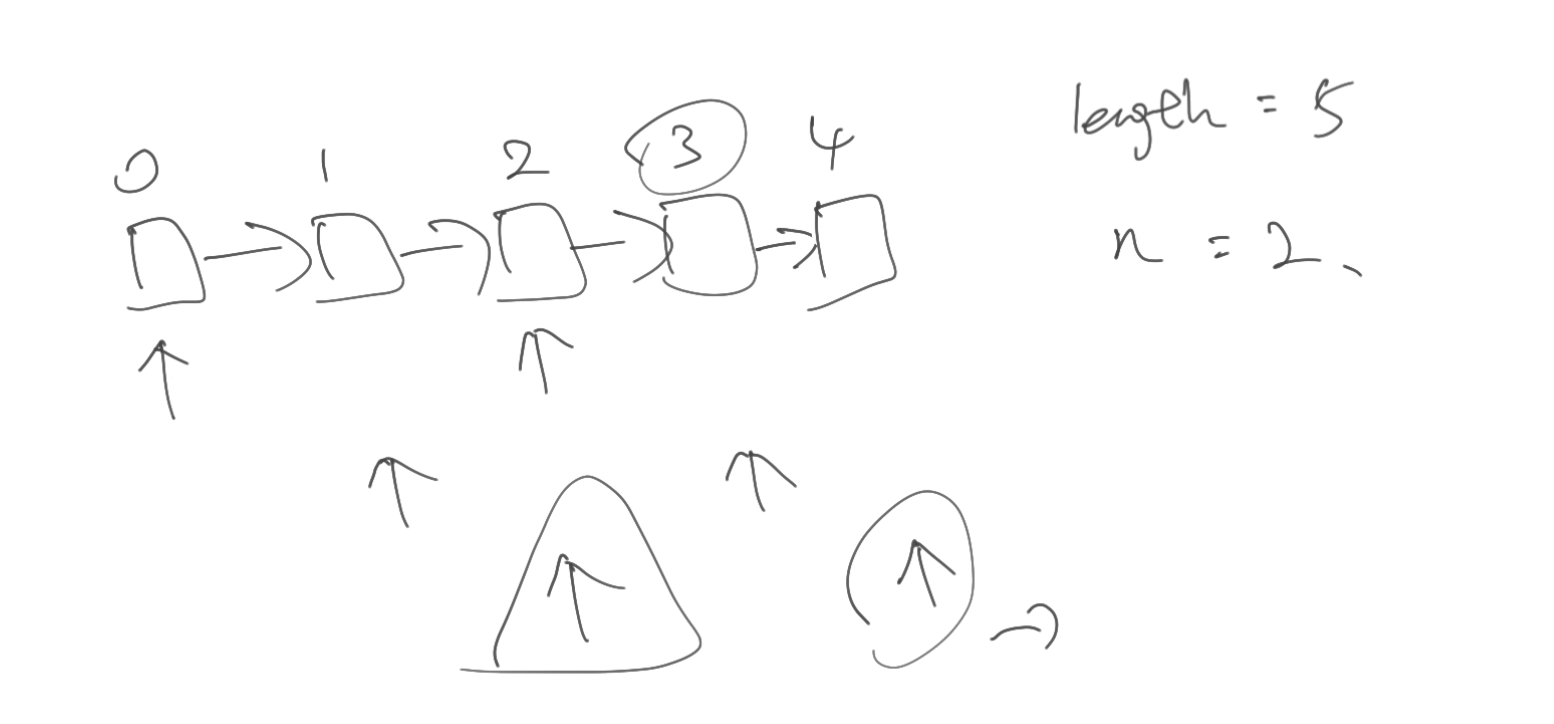 0 1 2 3 4
length = 5
n = 2、